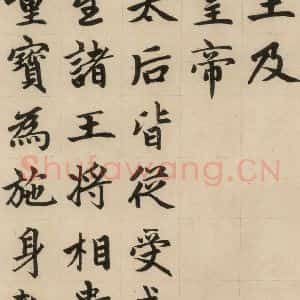 王及
皇帝
太后皆從受戒
至諸王將相貴
重寶為施身執
Shufawang.CN